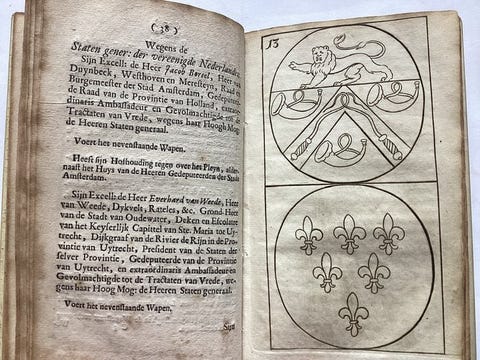 ( 38 )
Wegens de
Staten gener: der vereenigde Nederlanden
Sijn Excell: de Heer Jacob Boreel, Heer van
Duynbeek, Westhoven en Meresteyn, Raad en
Burgemeester der Stad Amsterdam, Gedeputeer
de Raad van de Provintie van Holland, extraor-
dinaris Ambassadeur en Gevolmachtigde tot de
Tractaten van Vrede, wegens haar Hoogh Mog:
de Heeren Staten generaal.
Voert het nevenstaande Wapen.
Heeft sijn Hofhouding tegen over het Pleyn, alder-
naast het Huys van de Heeren Gedeputeerden der Stadt
Amsterdam.
Sijn Excell: de Heer Everhard van Weede, Heer
van Weede, Dykvelt, Rateles, &c. Grond-Heer
van de Stadt van Oudewater, Deken en Escolater
van het Keyserlijk Capittel van Ste. Maria tot Uy-
trecht, Dijkgraaf van de Rivier de Rijn in de Pro-
vintie van Uytrecht, President van de Staten der
selver Provintie, Gedeputeerde van de Provintie
van Uytrecht, en extraordinaris Ambassadeur en
Gevolmachtigde tot de Tractaten van Vrede, we-
gens haar Hoog Mog: de Heeren Staten generaal.
Voert het nevenstaande Wapen.
Sijn
13